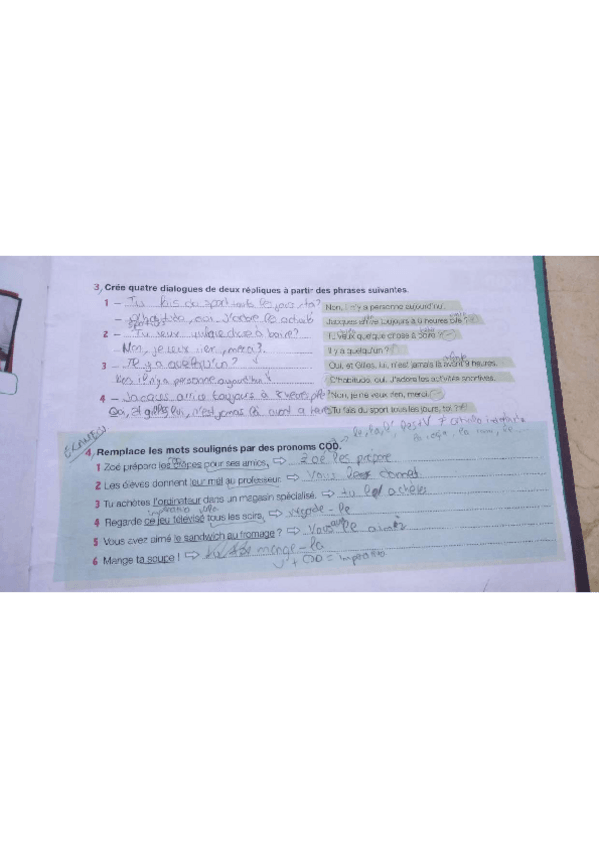 3 Crée quatre dialogues de deux répliques à partir des phrases suivantes.
1 – Tu fais du sport tous les jours, toi? Non, il n'y a personne aujourd'hui.
– D'habitude, oui J'adore les activités Jacques arrive toujours à 9 heures pile ?
sportives
2 – Tu veux quelque chose à boire? Tu veux quelque chose à boire ?
Non, je veux rien, merci. Il y a quelqu'un ?
3 – Il y a quelqu'un? Oui, et Gilles, lui, n'est jamais là avant 9 heures.
il n'y a personne aujourd'hui D'habitude, oui. J'adore les activités sportives.
4 – Jacques arrive toujours à 9 heures pile? Non, je ne veux rien, merci.
Oui, et Gilles, lui, n'est jamais là avant 9 heures Tu fais du sport tous les jours, toi ?
4 Remplace les mots soulignés par des pronoms COD.
1 Zoé prépare les crêpes pour ses amis. ⇨ Zoé les prépare
2 Les élèves donnent leur mail au professeur. ⇨ Vous le donnet
3 Tu achètes l'ordinateur dans un magasin spécialisé. ⇨ tu l' achètes
impératif
4 Regarde ce jeu télévisé tous les soirs. ⇨ regarde-le
5 Vous avez aimé le sandwich au fromage ? ⇨ Vous le aimez
6 Mange ta soupe ! ⇨ mange-la
V + COD = impératif